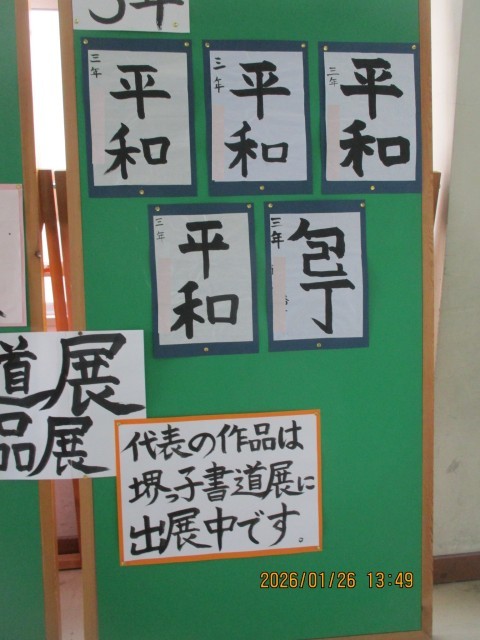 三年
平和
三年
平和
三年
平和
三年
平和
三年
包丁
道展
品展
代表の作品は
堺っ子書道展に
出展中です。
2026/01/26 13:49